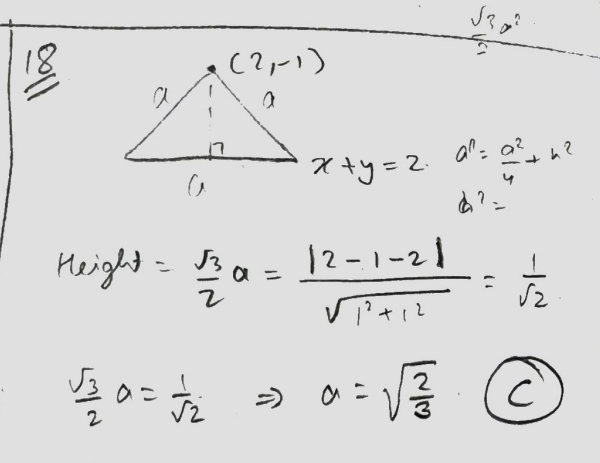 √3/2 a²
18
(2,-1)
a a
x+y=2. a² = a²/4 + h²
a
h² =
Height = √3/2 a = |2-1-2|/√(1²+1²) = 1/√2
√3/2 a = 1/√2 ⇒ a = √(2/3). C